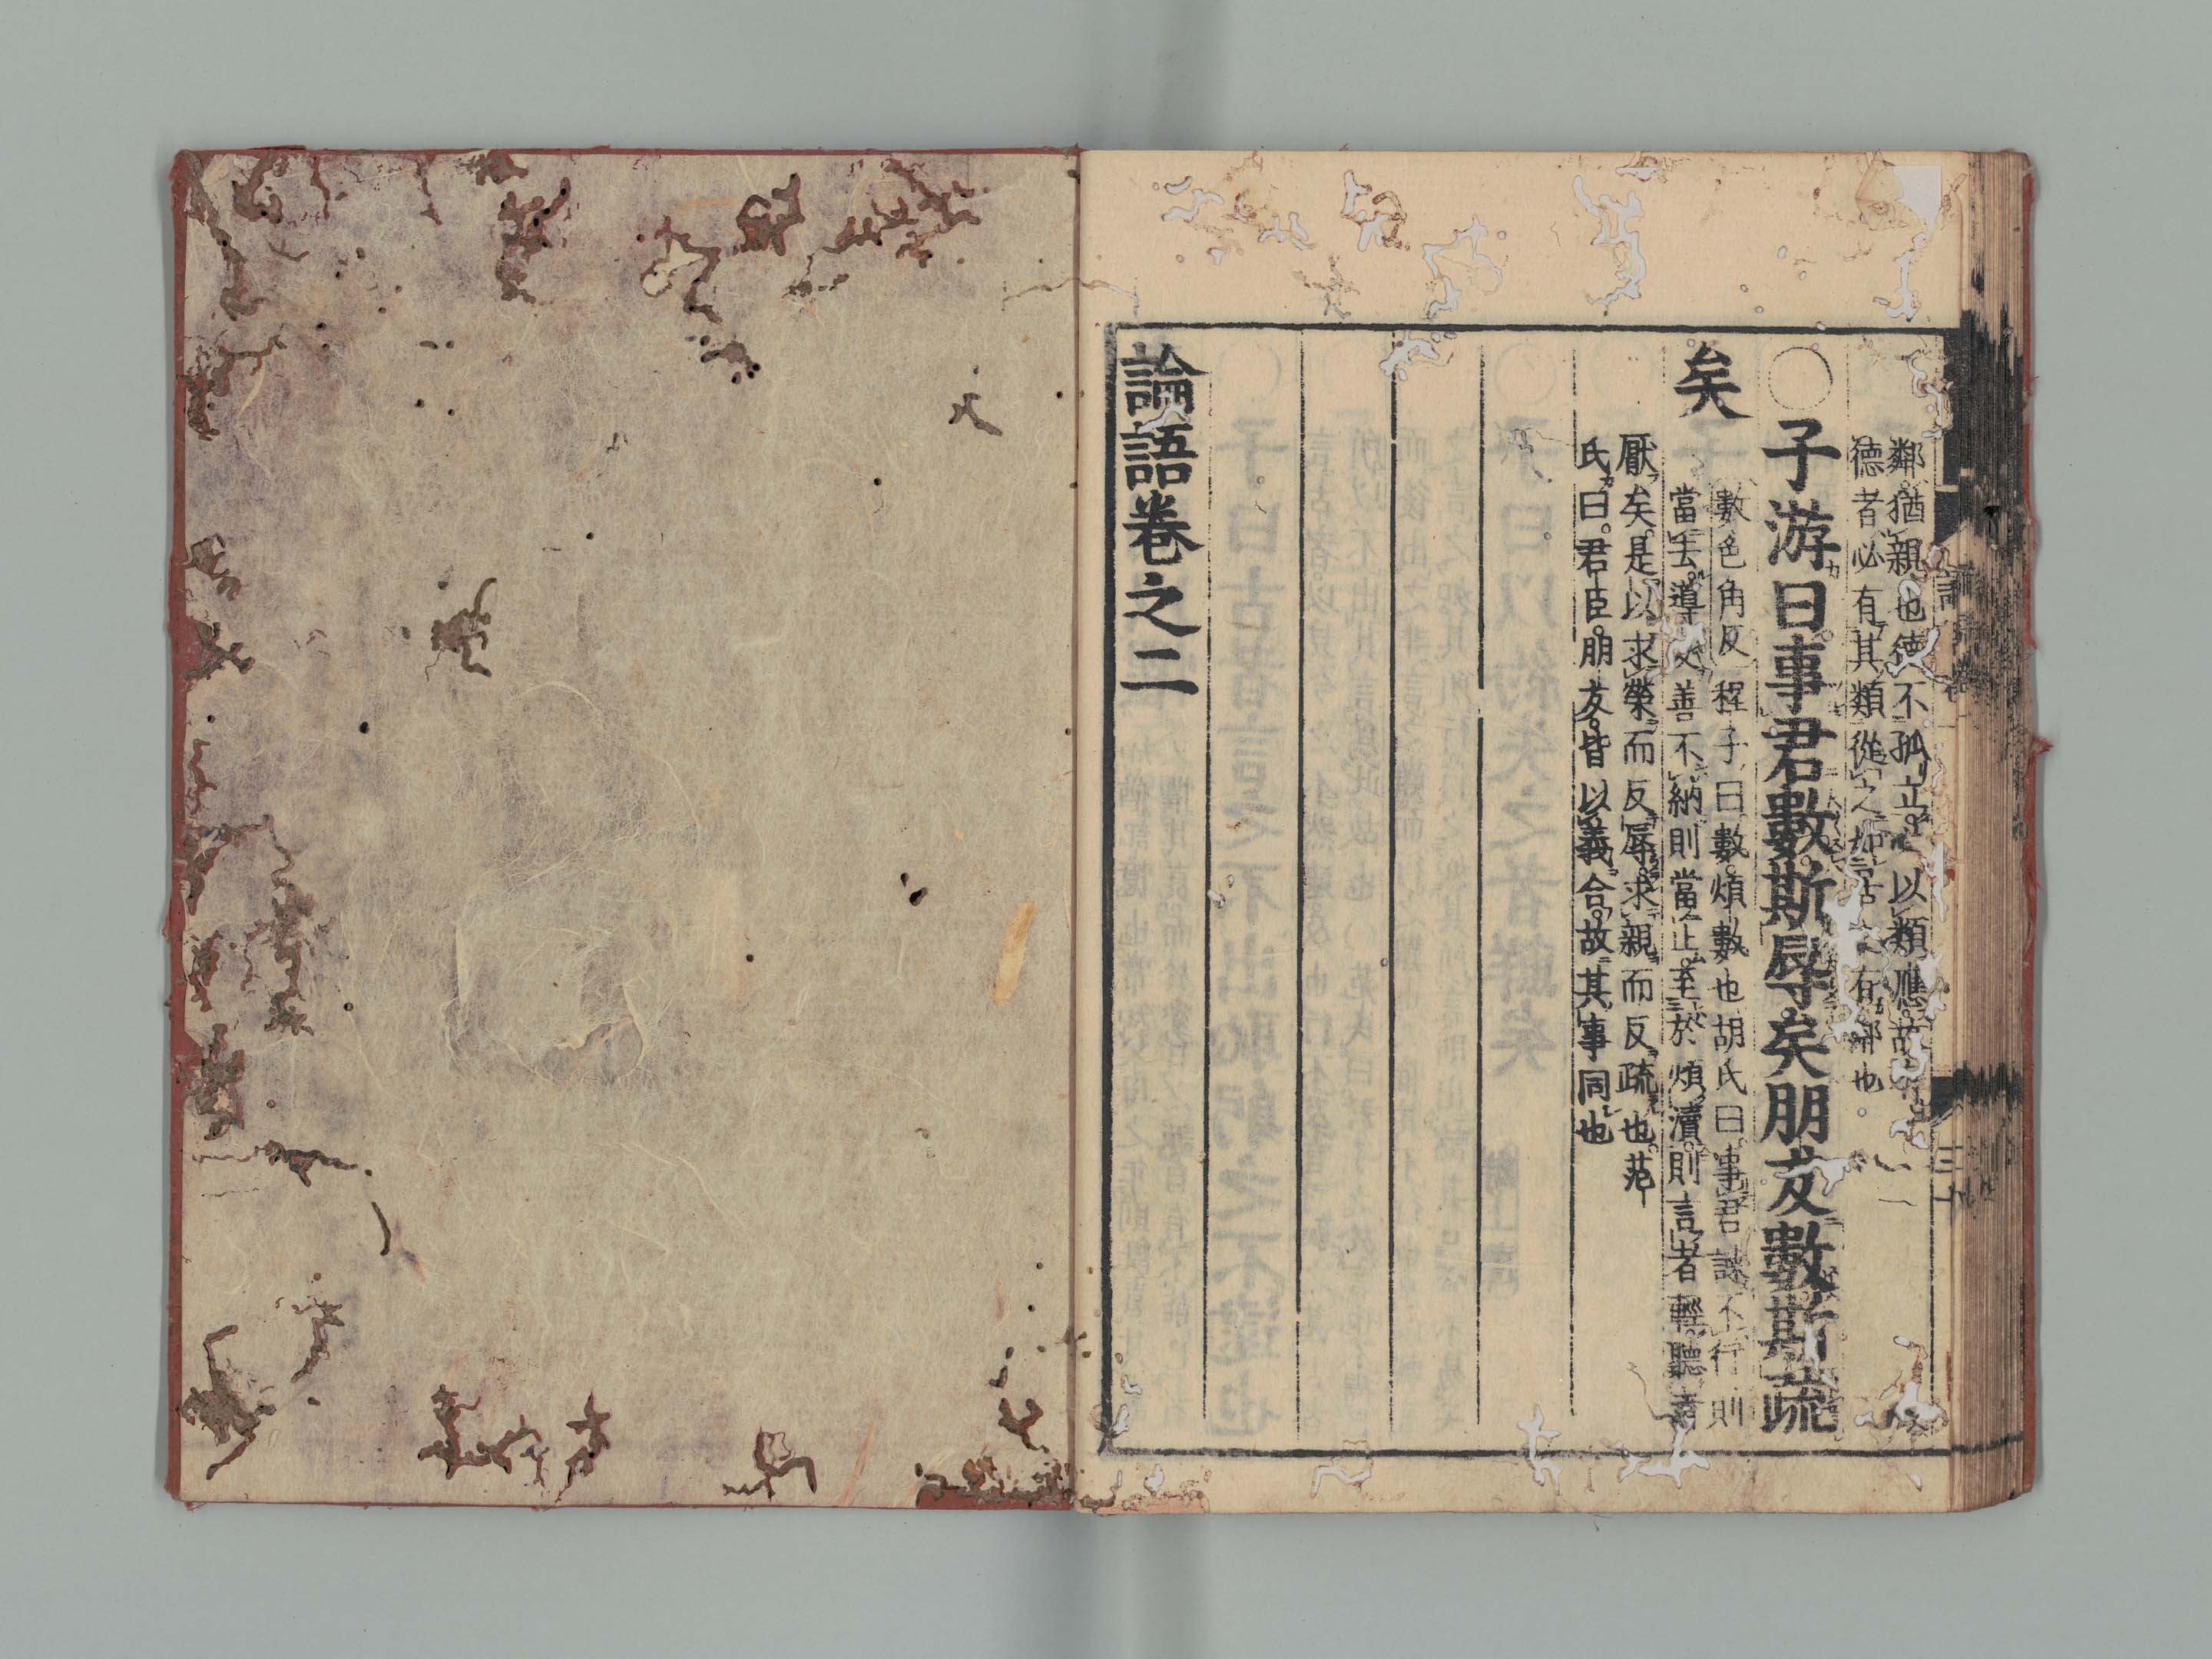 鄰猶親也德不孤立以類應故
德者必有其類從之如居之有鄰也
○子游曰事君數斯辱矣朋友數斯疏
矣
數色角反程子曰數煩數也胡氏曰事君諫不行則
當去導友善不納則當止至於煩瀆則言者輕聽者
厭矣是以求榮而反辱求親而反疏也范
氏曰君臣朋友皆以義合故其事同也
論語卷之二